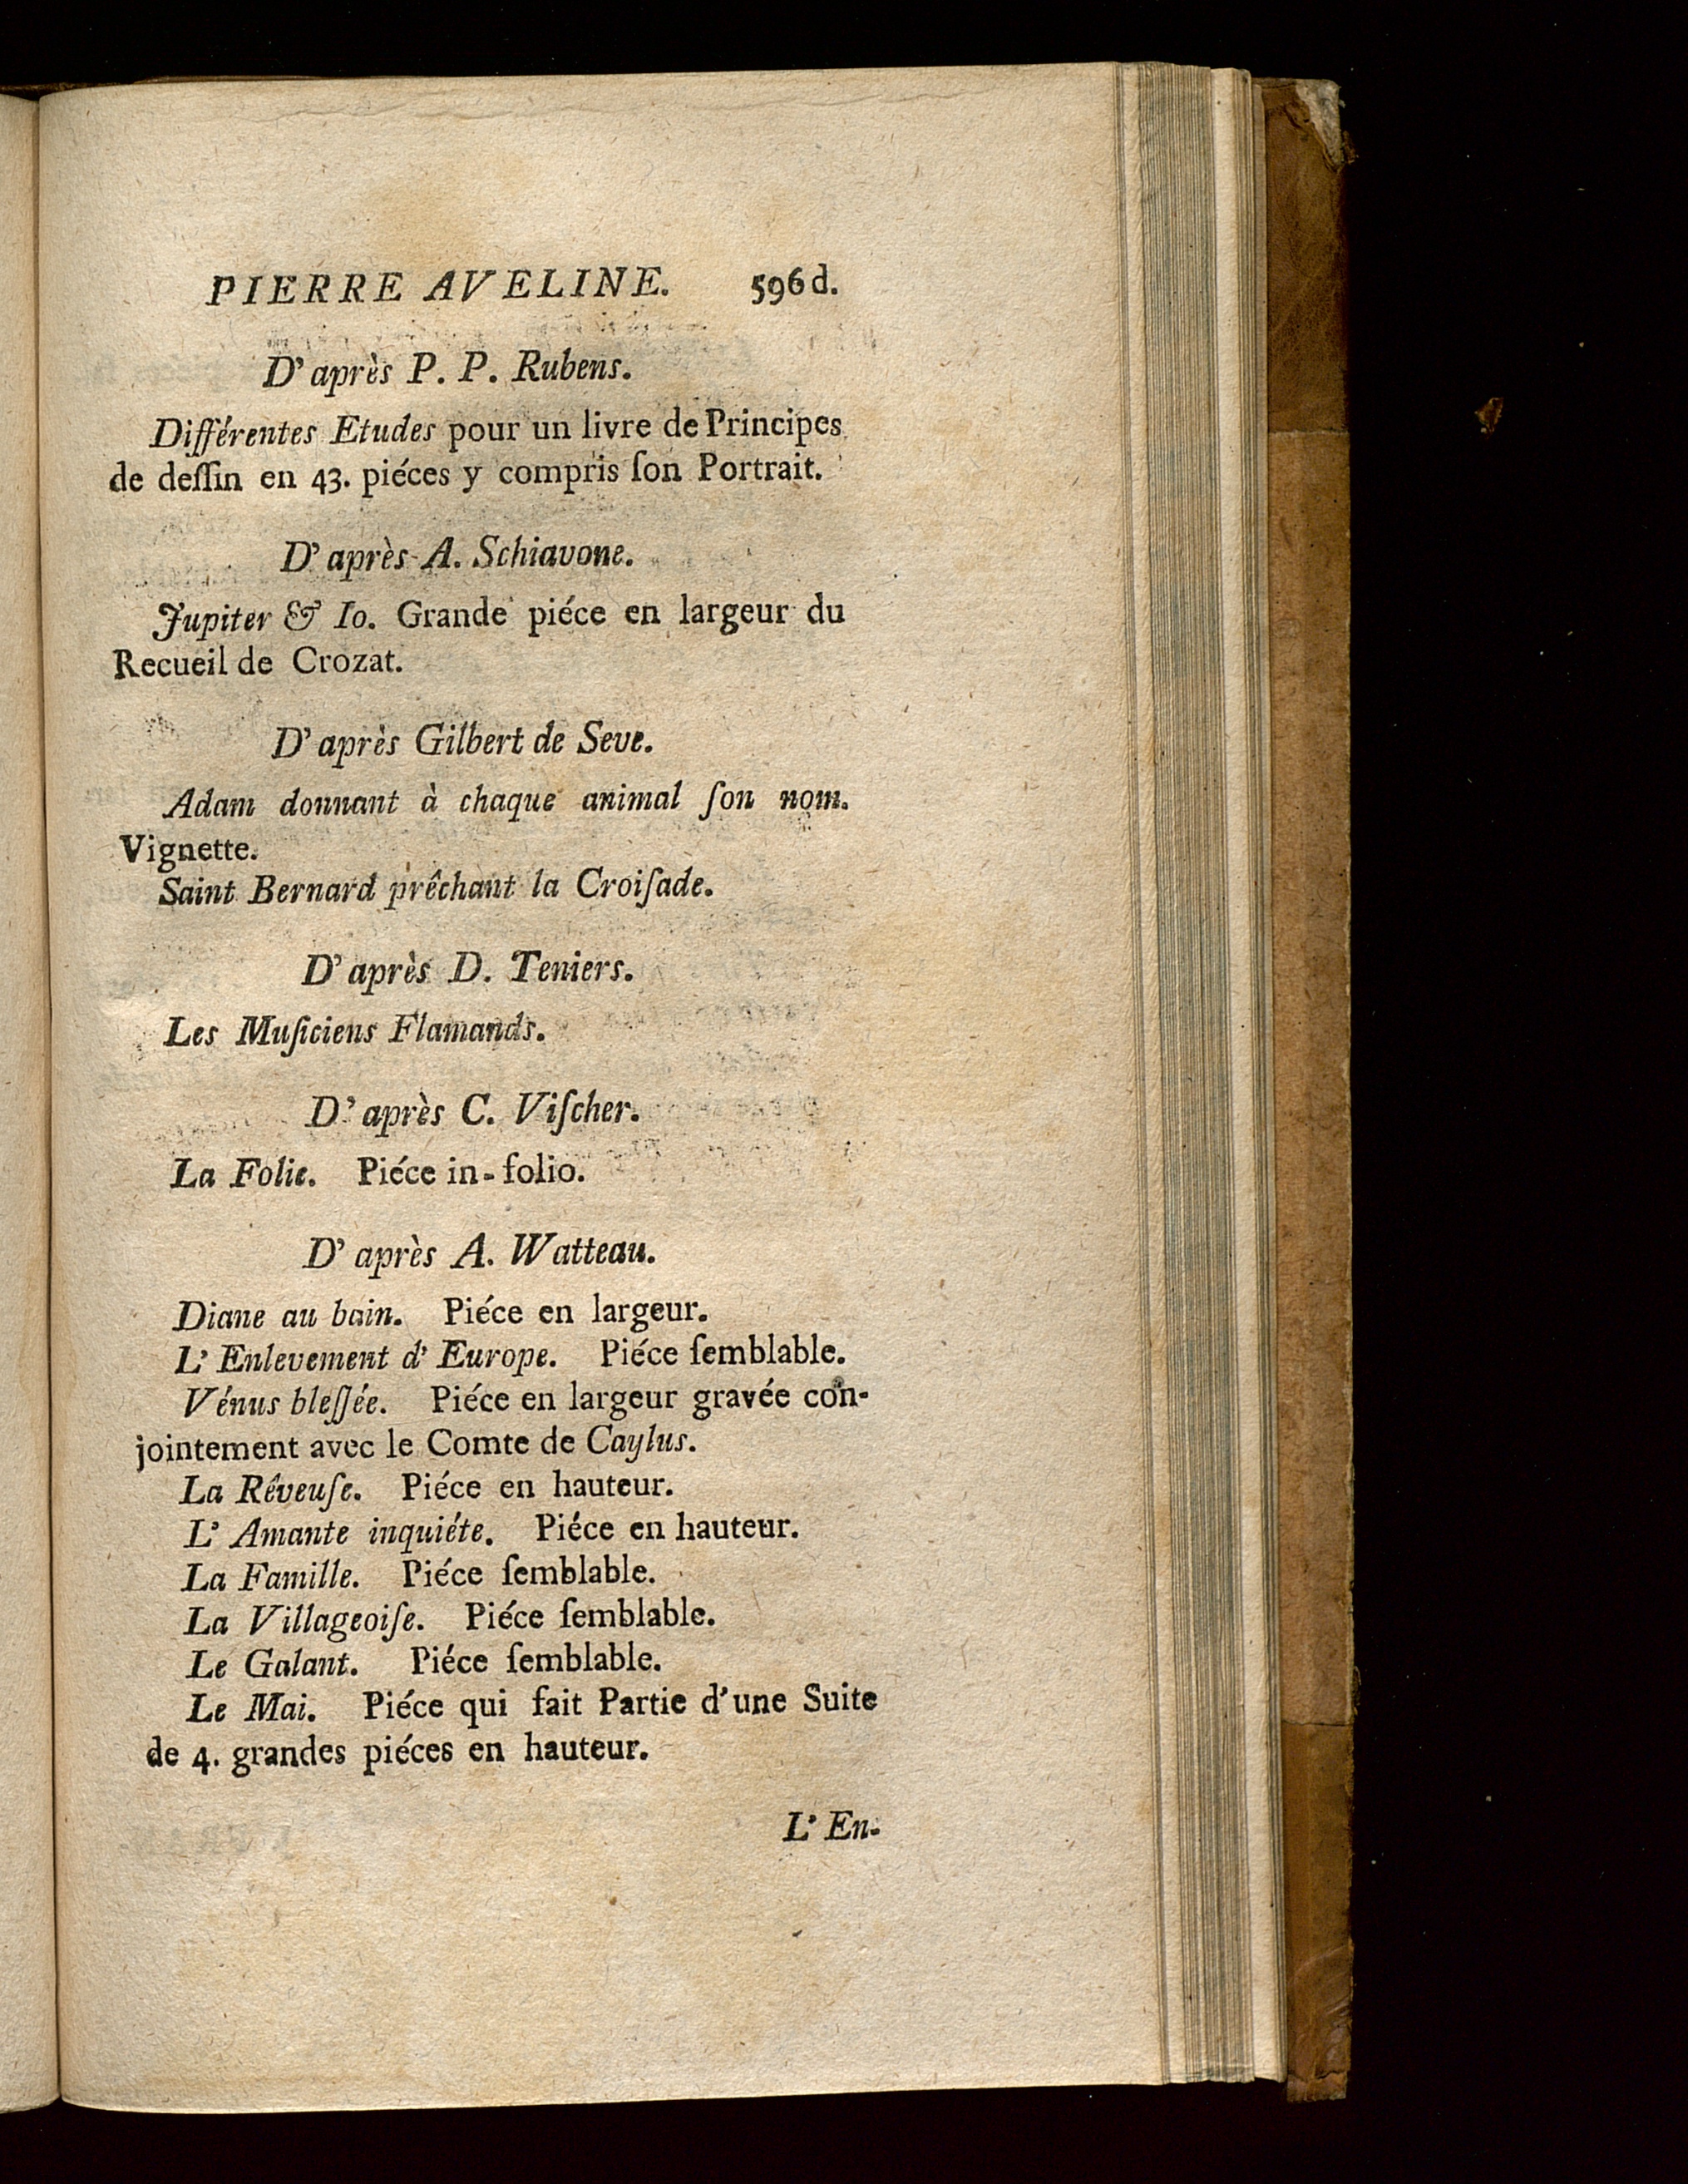 PIERRE AVELINE. 596d.
D' après P. P. Rubens.
Différentes Etudes pour un livre de Principes
de deſſin en 43. piéces y compris ſon Portrait.
D' après A. Schiavone.
Jupiter & Io. Grande piéce en largeur du
Recueil de Crozat.
D' après Gilbert de Seve.
Adam donnant à chaque animal ſon nom.
Vignette.
Saint Bernard prêchant la Croiſade.
D' après D. Teniers.
Les Muſiciens Flamands.
D' après C. Viſcher.
La Folie. Piéce in-folio.
D' après A. Watteau.
Diane au bain. Piéce en largeur.
L' Enlevement d' Europe. Piéce ſemblable.
Vénus bleſſée. Piéce en largeur gravée con-
jointement avec le Comte de Caylus.
La Rêveuſe. Piéce en hauteur.
L' Amante inquiéte. Piéce en hauteur.
La Famille. Piéce ſemblable.
La Villageoiſe. Piéce ſemblable.
Le Galant. Piéce ſemblable.
Le Mai. Piéce qui fait Partie d'une Suite
de 4. grandes piéces en hauteur.
L' En-